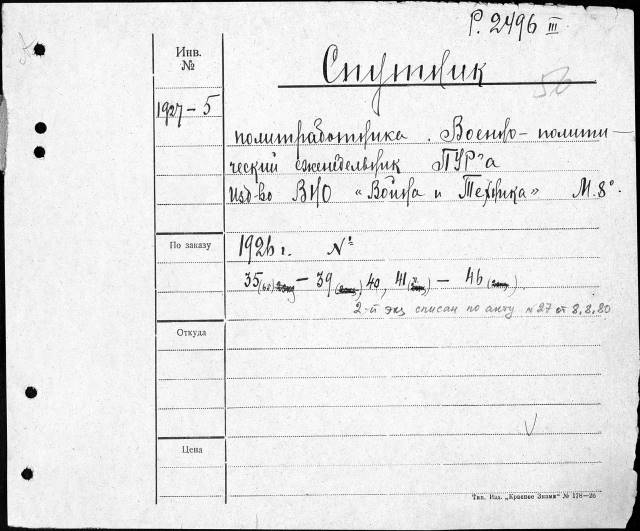 Р. 2496 III
Инв. №
Спутник
56
1927 – 5
политработника. Военно-полити-
ческий еженедельник ПУР'а
Изд-во ВНО «Война и Техника» М. 8°.
По заказу
1926 г. №
35 – 39 40, 41 – 46
2-й экз списан по акту № 27 от 8.8.80
Откуда
Цена
Тип. Изд. „Красное Знамя" № 178–26